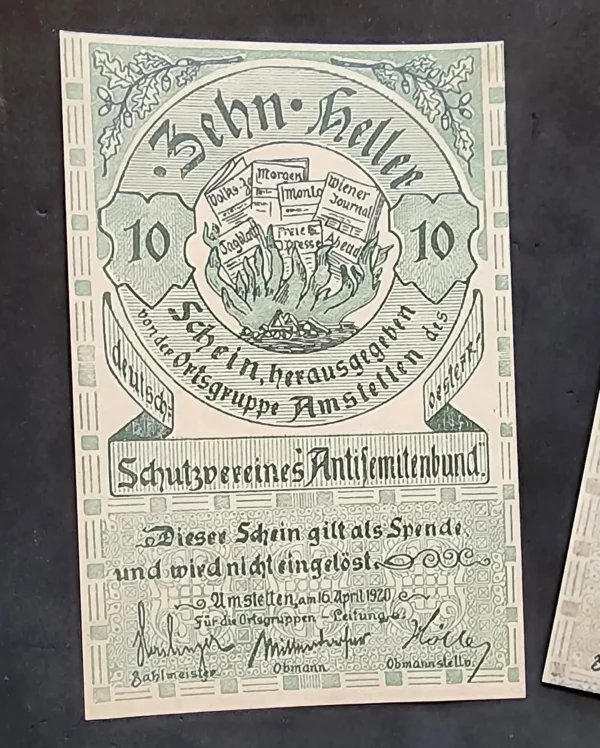 Zehn · Heller
10
10
Volks-Z
Morgen
Monta
Wiener
Journal
Tagblatt
Freie
Presse
Abend
Schein, herausgegeben
von der Ortsgruppe Amstetten des
deutsch-
österr.-
Schutzvereines "Antisemitenbund".
Dieser Schein gilt als Spende
und wird nicht eingelöst.
Amstetten, am 16. April 1920
Für die Ortsgruppen-Leitung:
Zahlmeister
Obmann
Obmannstellv.